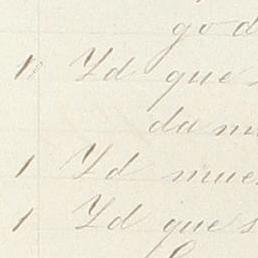 go d
11 Yd que
da m
1 Yd mue
1 Yd que s